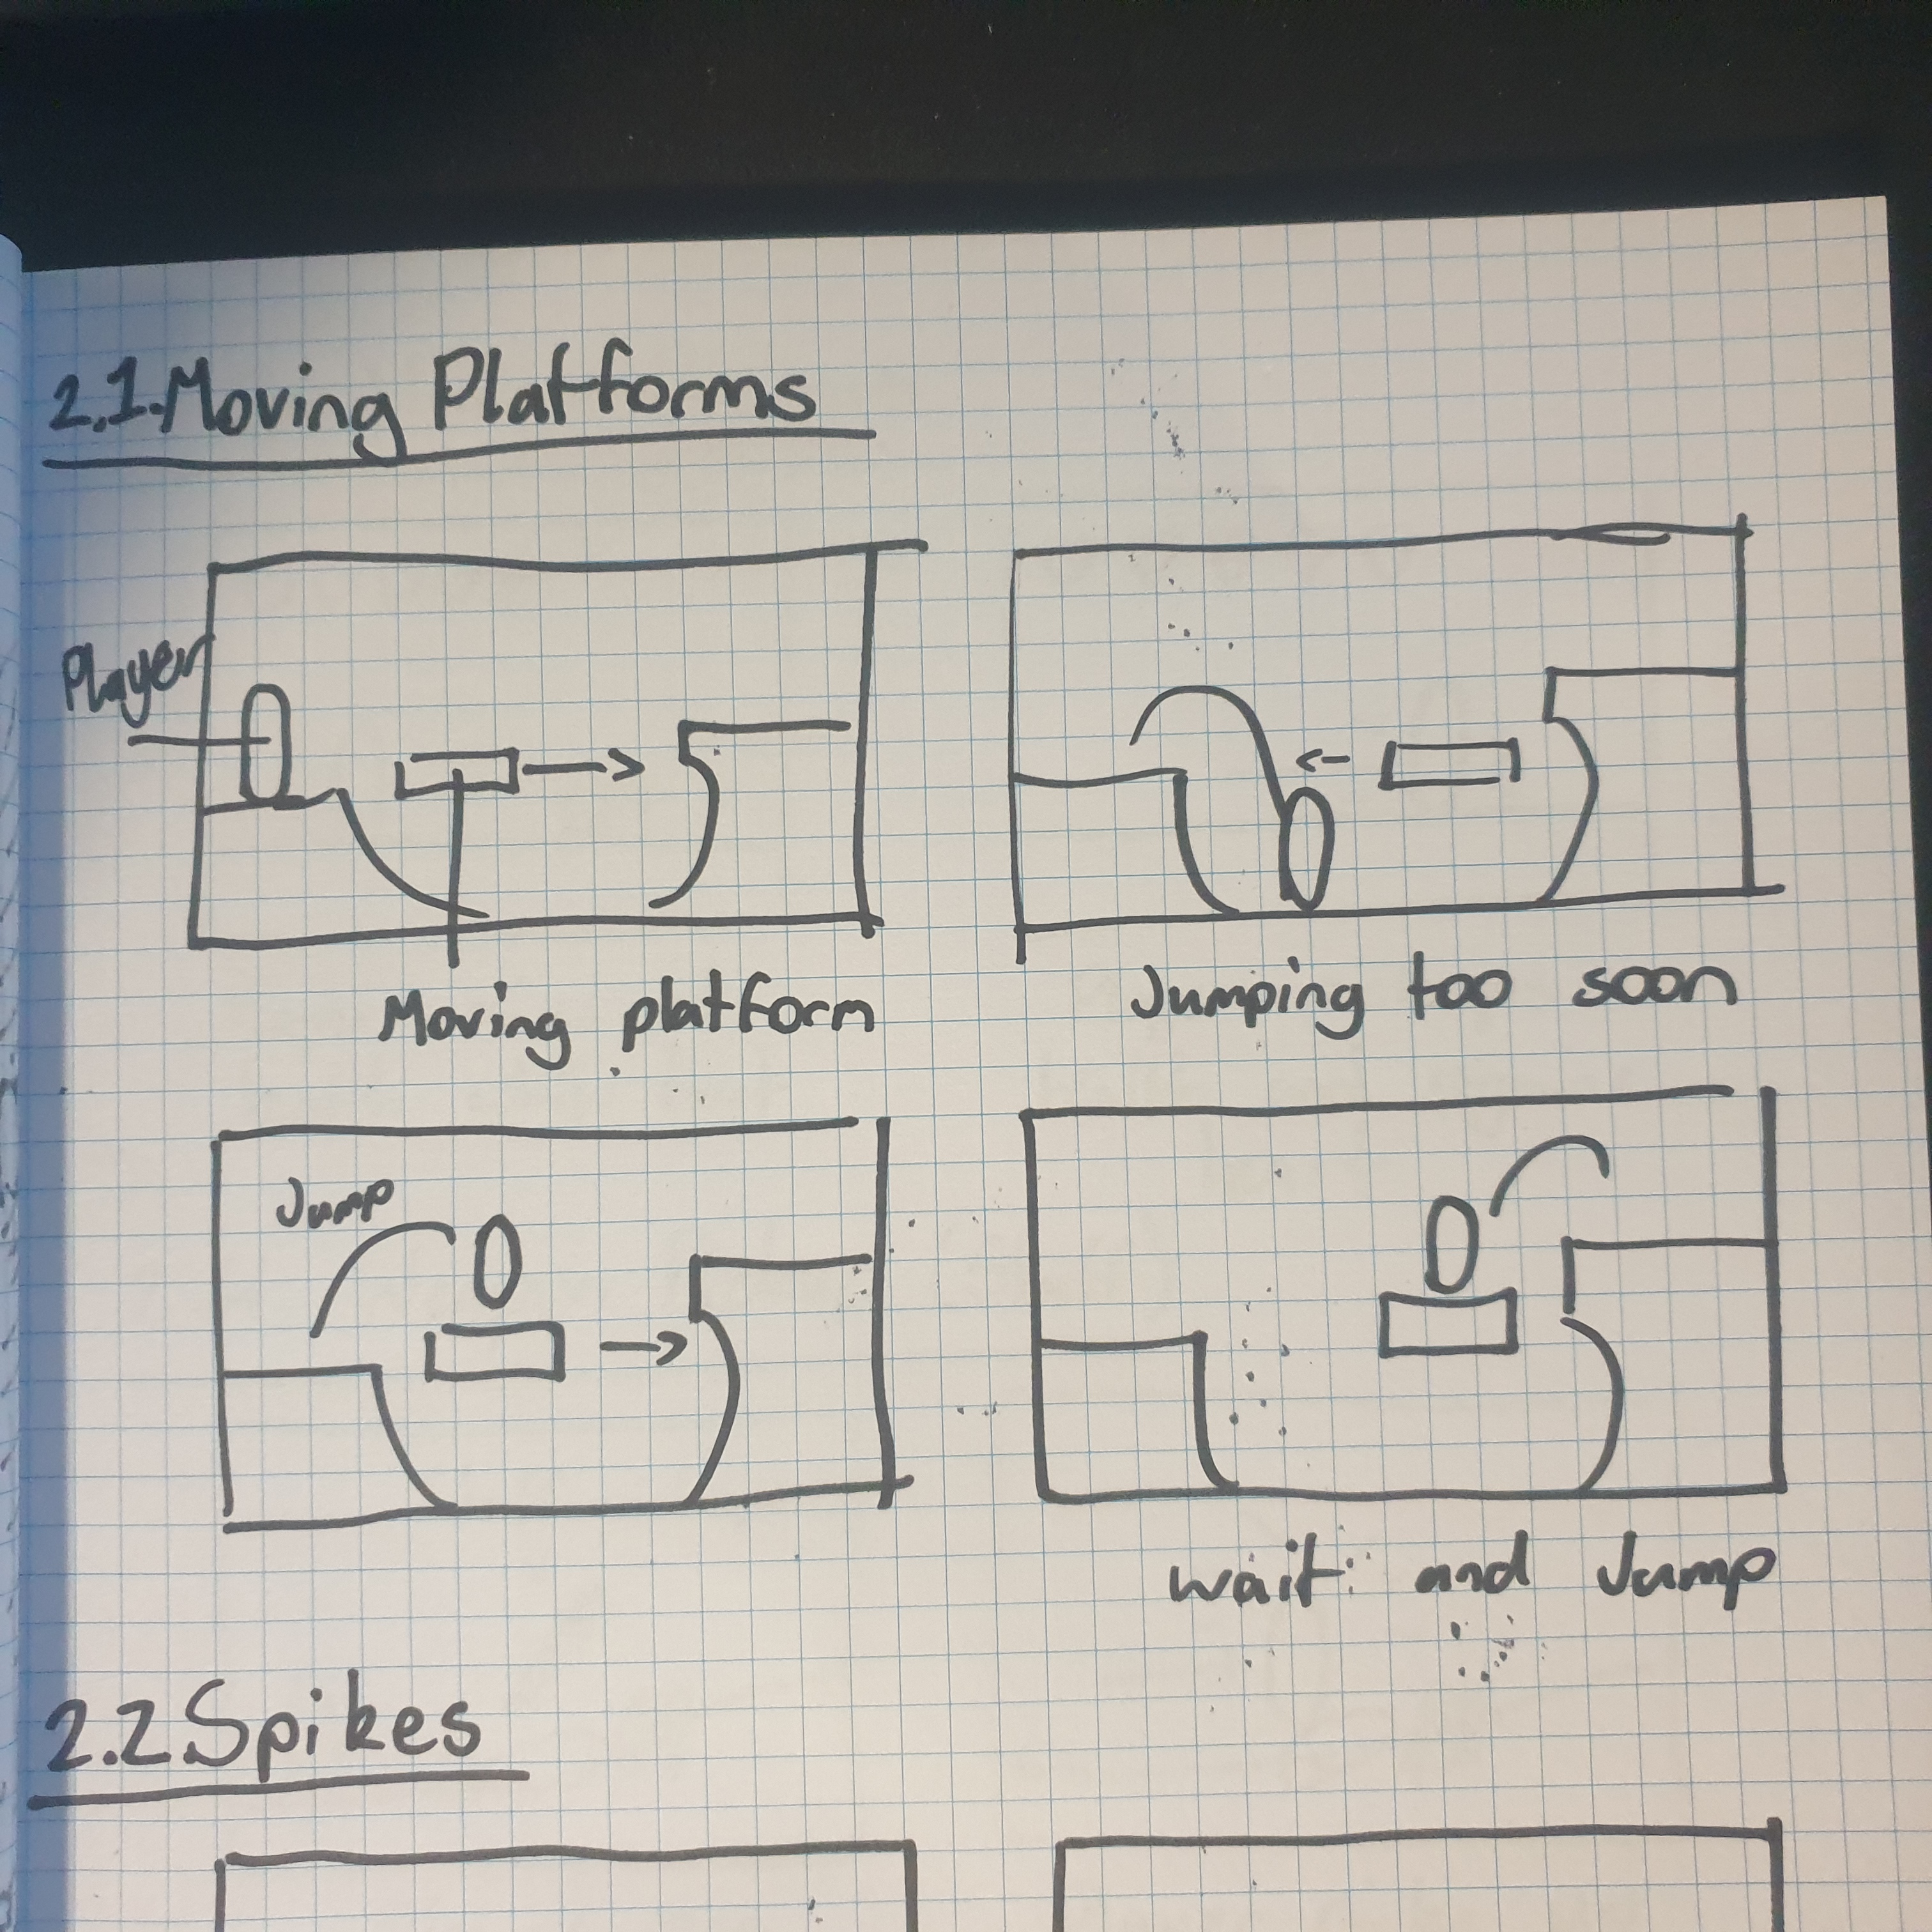 2.1. Moving Platforms
Player
Moving platform
Jumping too soon
Jump
wait and Jump
2.2 Spikes